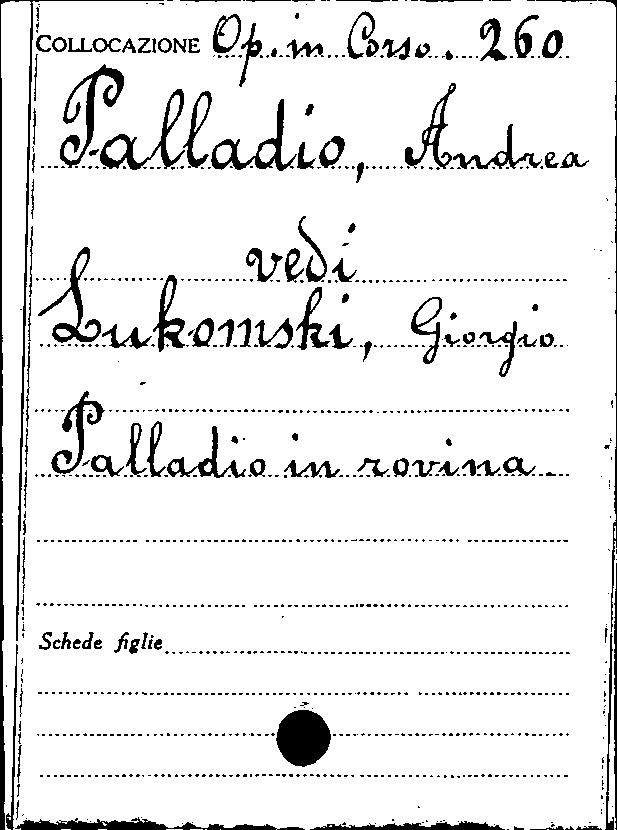 COLLOCAZIONE Op. in Corso. 260
Palladio, Andrea
vedi
Lukomski, Giorgio
Palladio in rovina.
Schede figlie